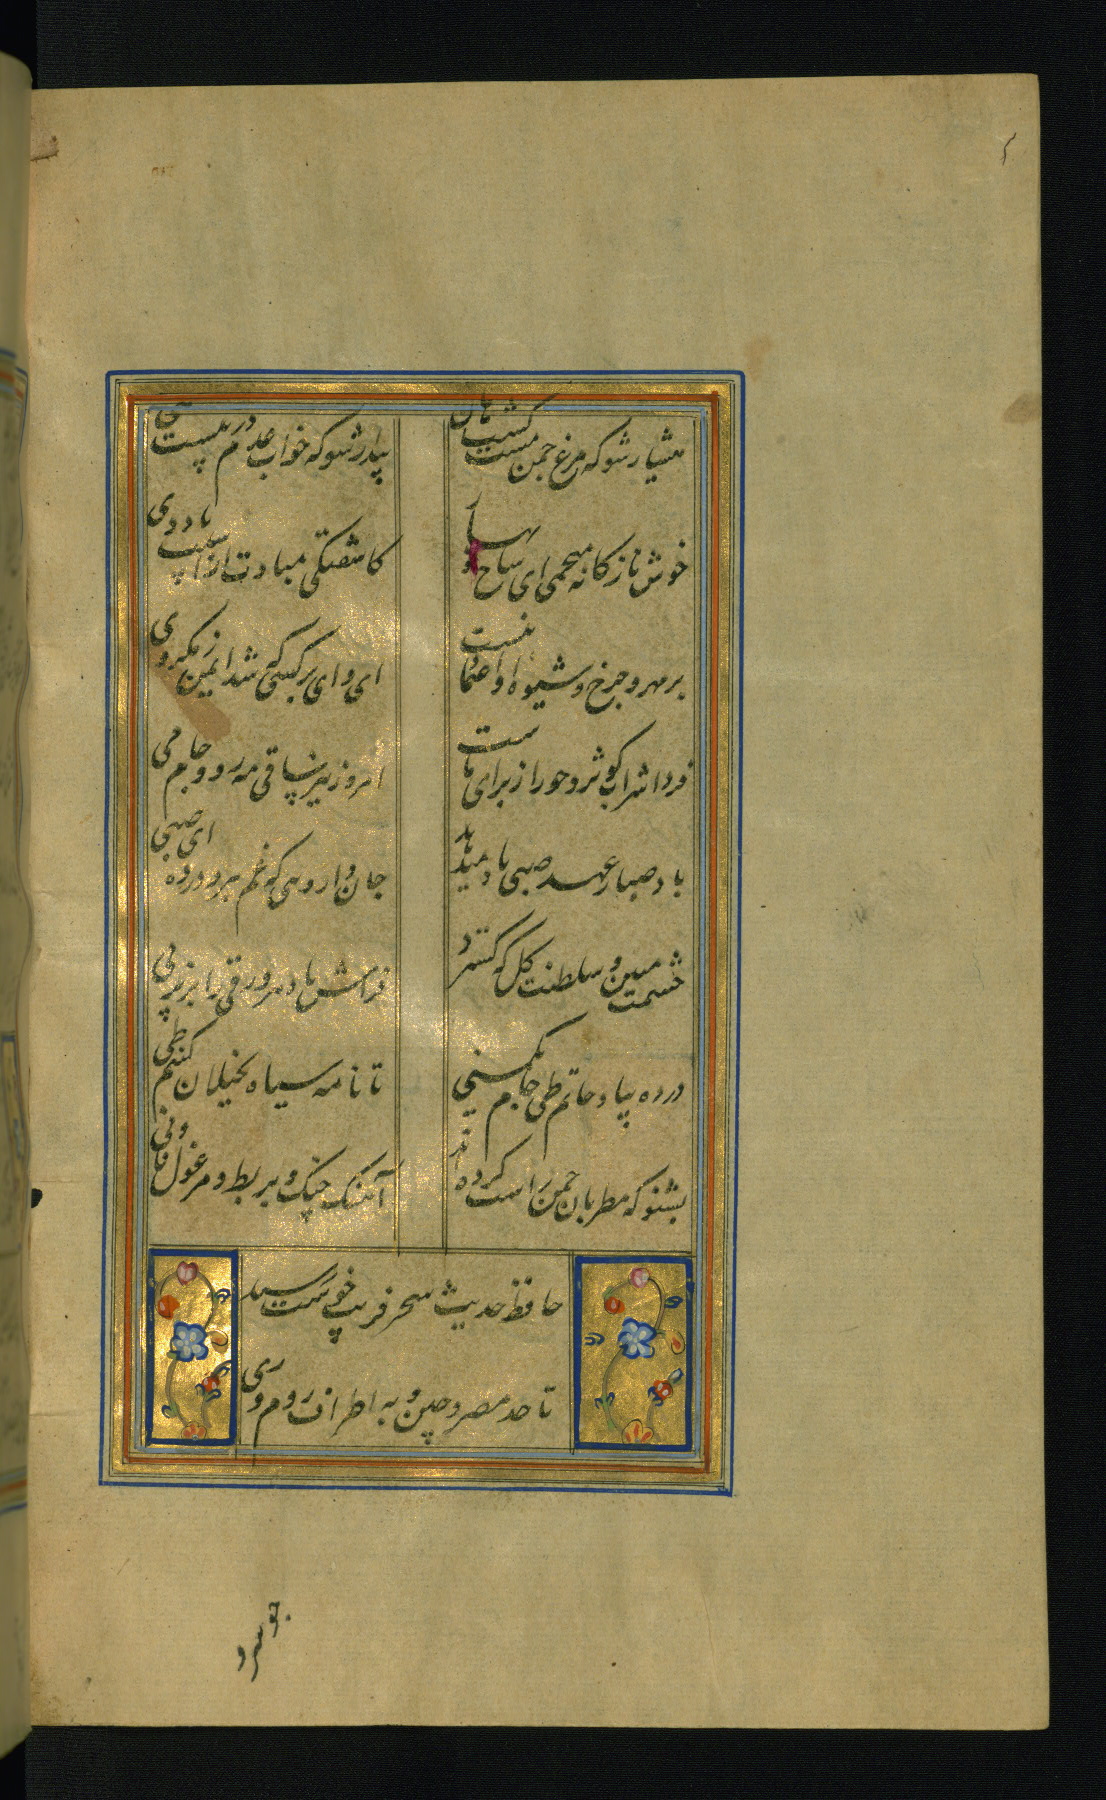 هشیار شو که مرغ چمن مست گشت هان
بیدار شو که خواب عدم در پیست هی
خوش نازکانه میچمی ای شاخ نوبهار
کاشفتگی مبادت از آسیب باد دی
بر مهر چرخ و شیوه او اعتماد نیست
ای وای بر کسی که شد ایمن ز مکر وی
فردا شراب کوثر و حور از برای ماست
امروز نیز ساقی مه رو و جام می
باد صبا ز عهد صبی یاد میدهد
جان داروی که غم ببرد درده ای صبی
حشمت مبین و سلطنت گل که گسترد
فراش باد هر ورقی را بزیر پی
درده بیاد حاتم طی جام یکمنی
تا نامه سیاه بخیلان کنیم طی
بشنو که مطربان چمن راست کرده اند
آهنگ چنگ و بربط و مرغول نای و نی
حافظ حدیث سحر فریب خوشت رسید
تا حد مصر و چین و به اطراف روم و ری